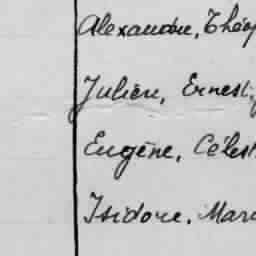 Alexandre, Théop
Julien, Ernest,
Eugène, Célest
Isidore, Mari